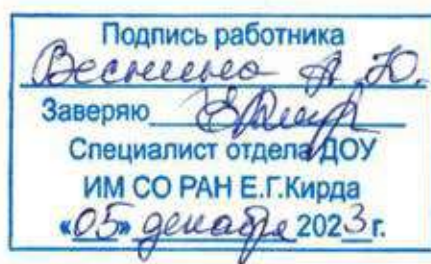 Подпись работника
Веснина А.Ю.
Заверяю
Специалист отдела ДОУ
ИМ СО РАН Е.Г.Кирда
«05» декабря 2023 г.